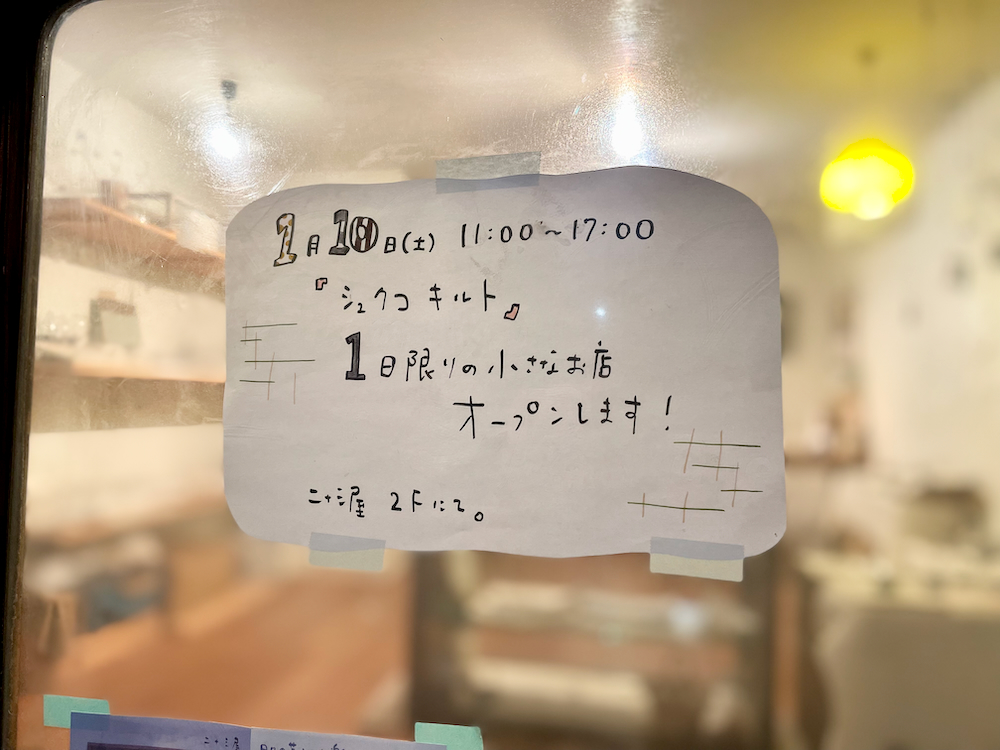 1月10日(土) 11:00～17:00
『シュクコ キルト』
1日限りの小さなお店
オープンします!
二十三屋 2Fにて。
二十三屋